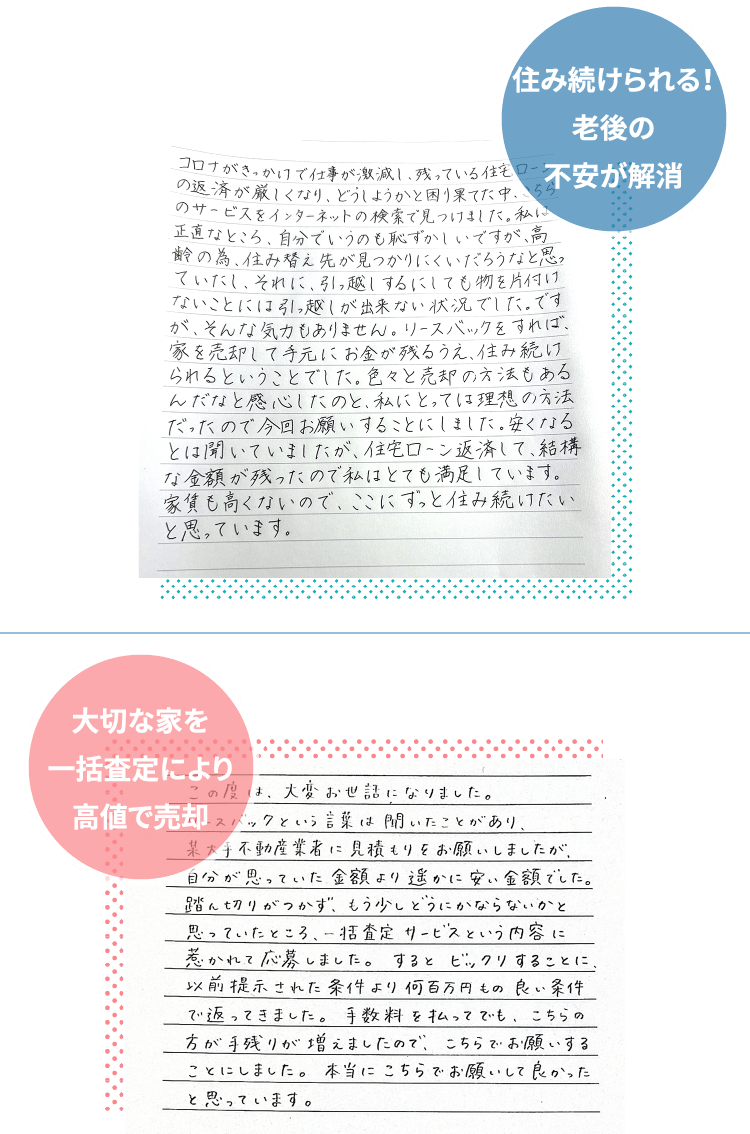 住み続けられる！
老後の
不安が解消
コロナがきっかけで仕事が激減し、残っている住宅ローン
の返済が厳しくなり、どうしようかと困り果てた中、こちら
のサービスをインターネットの検索で見つけました。私は
正直なところ、自分でいうのも恥ずかしいですが、高
齢の為、住み替え先が見つかりにくいだろうなと思っ
ていたし、それに、引っ越しするにしても物を片付け
ないことには引っ越しが出来ない状況でした。です
が、そんな気力もありません。リースバックをすれば、
家を売却して手元にお金が残るうえ、住み続け
られるということでした。色々と売却の方法もある
んだなと感心したのと、私にとっては理想の方法
だったので今回お願いすることにしました。安くなる
とは聞いていましたが、住宅ローン返済して、結構
な金額が残ったので私はとても満足しています。
家賃も高くないので、ここにずっと住み続けたい
と思っています。
大切な家を
一括査定により
高値で売却
この度は、大変お世話になりました。
リースバックという言葉は聞いたことがあり、
某大手不動産業者に見積もりをお願いしましたが、
自分が思っていた金額より遥かに安い金額でした。
踏ん切りがつかず、もう少しどうにかならないかと
思っていたところ、一括査定サービスという内容に
惹かれて応募しました。するとビックリすることに、
以前提示された条件より何百万円もの良い条件
で返ってきました。手数料を払ってでも、こちらの
方が手残りが増えましたので、こちらでお願いする
ことにしました。本当にこちらでお願いして良かった
と思っています。